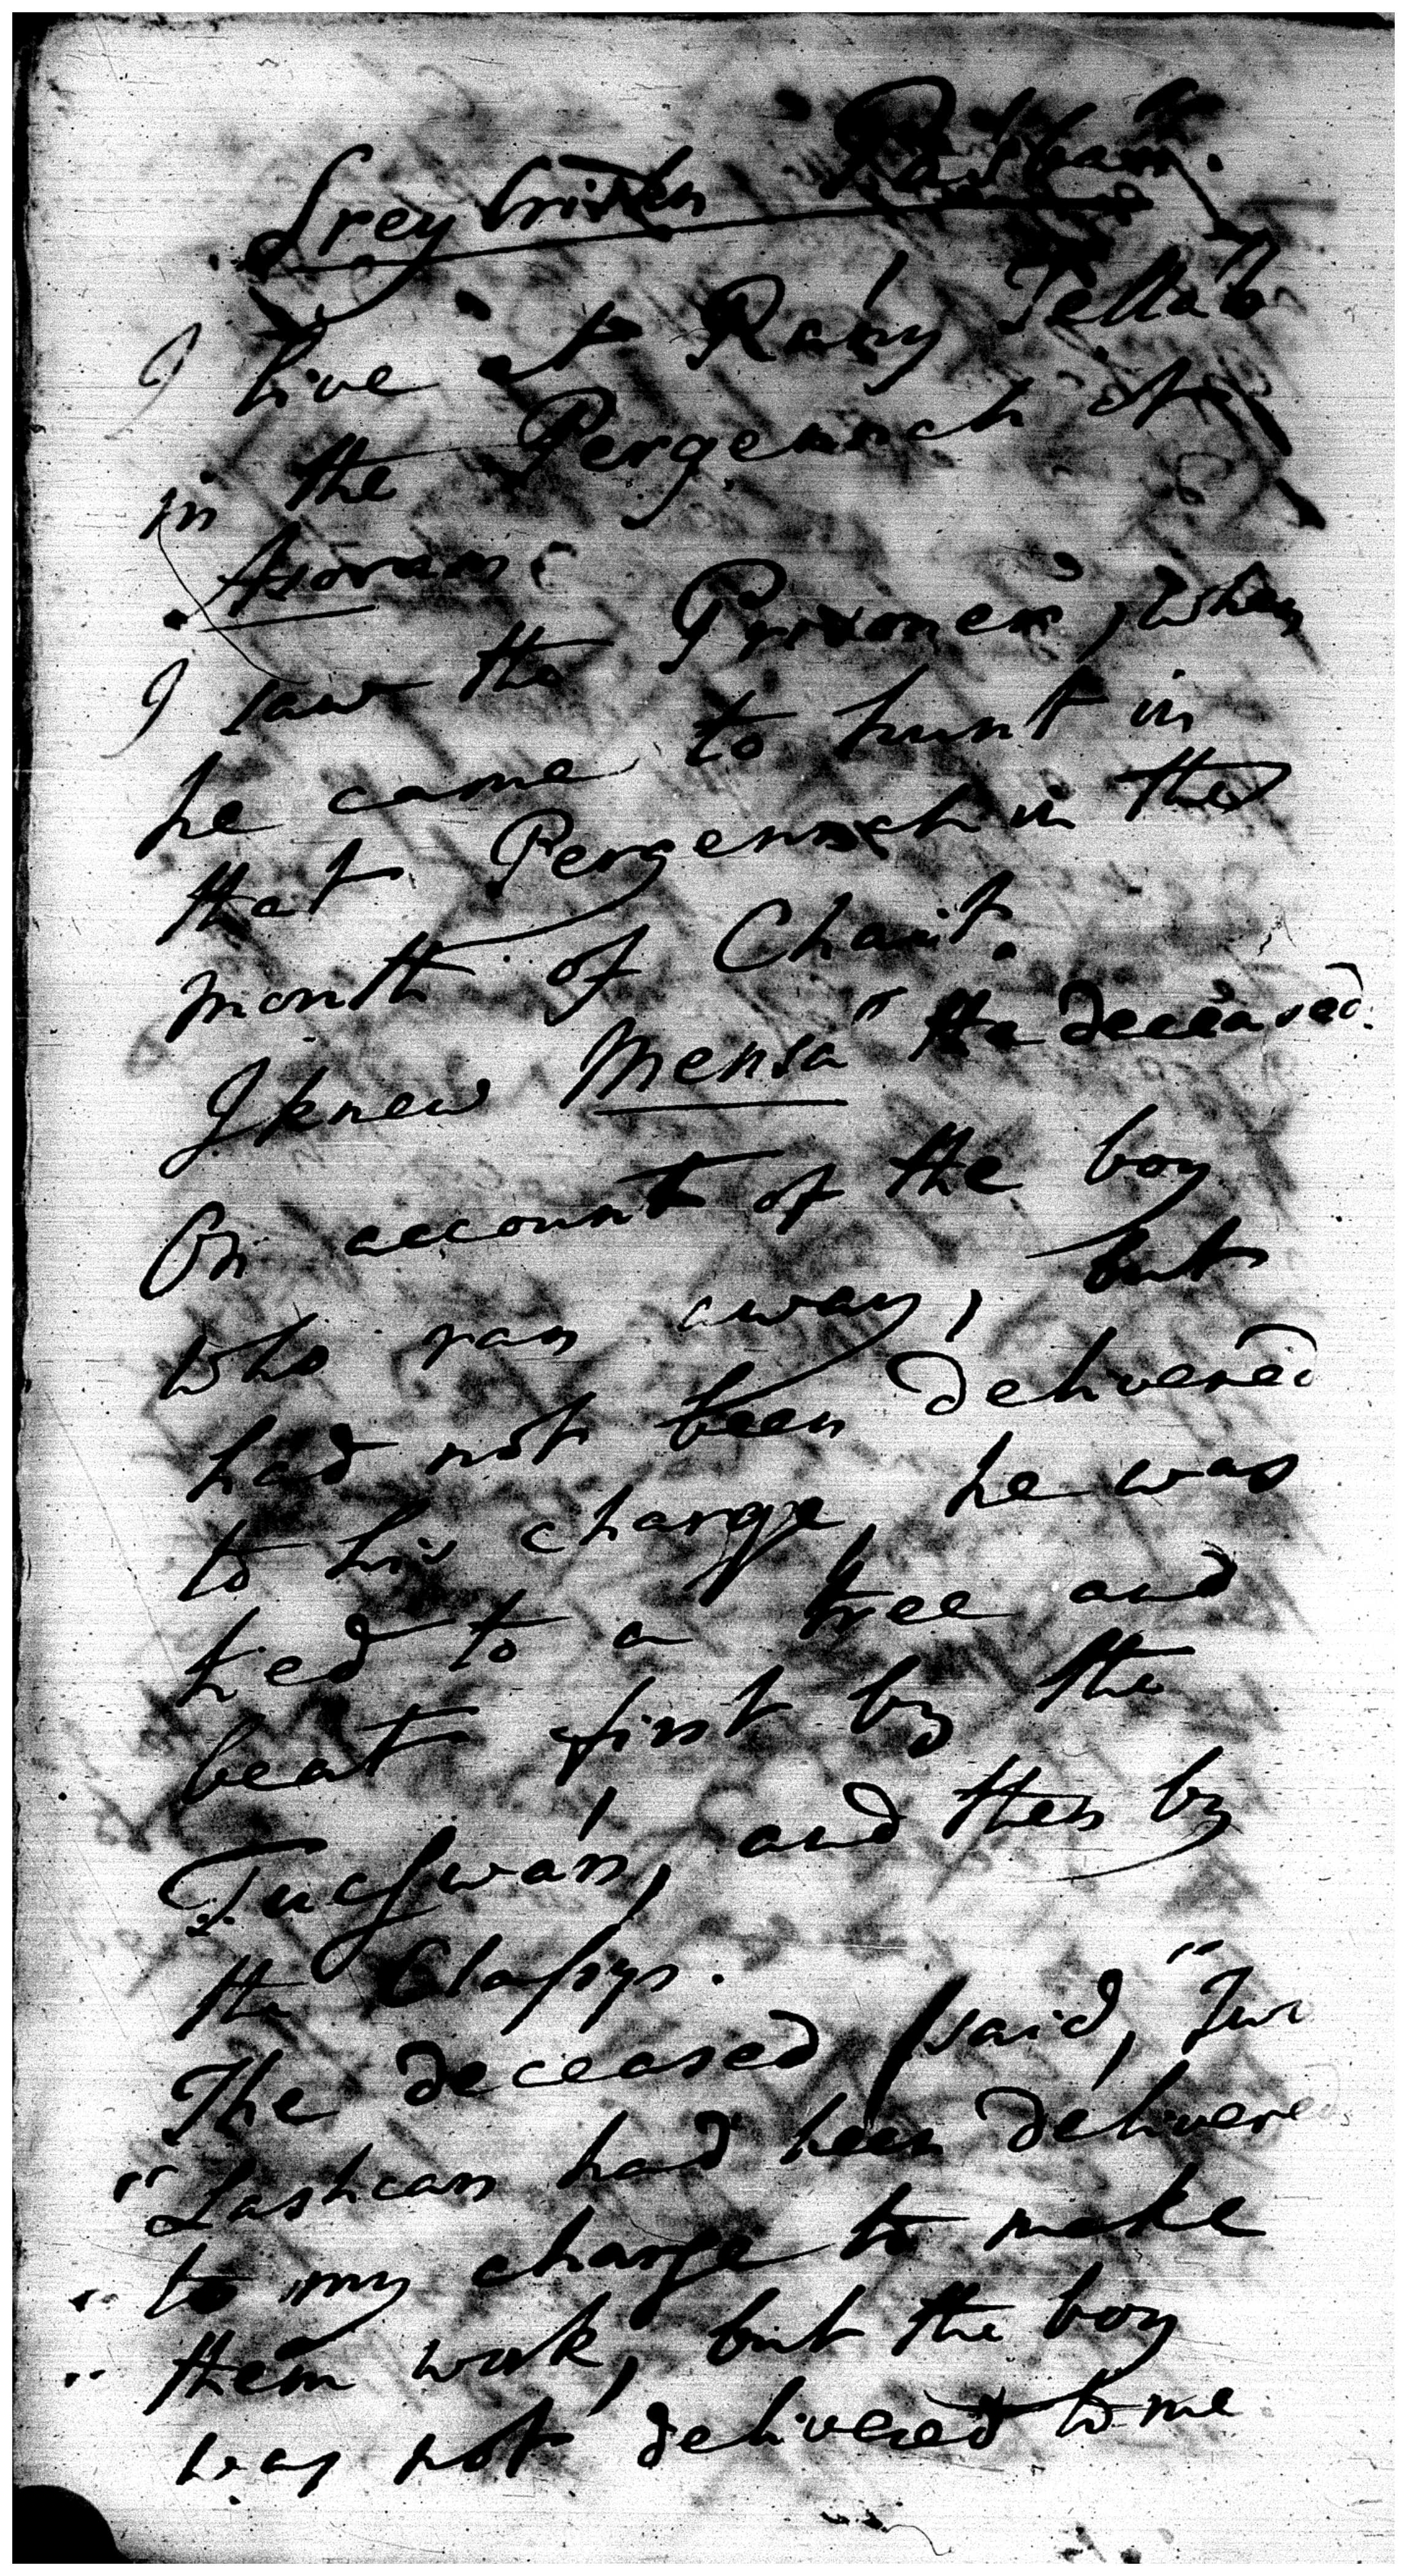 I live at Ramy Tellab
in the Pergennach of
Asoram.
I saw the Prisoner, when
he came to hunt in
that Pergennach in the
month of Chait.
I knew Mensa the deceased.
On account of the boy
who ran away, but
had not been delivered
to his charge, he was
tied to a tree and
beat first by the
and then by
the Classys.
The deceased said, "Two
"Lashcars had been delivered
" to my charge to make
" them work, but the boy
was not delivered to me